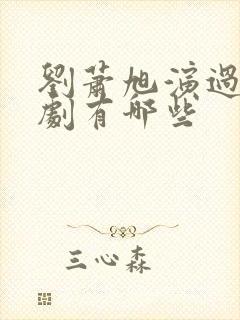 劉蕭旭演過
劇有哪些
三心森